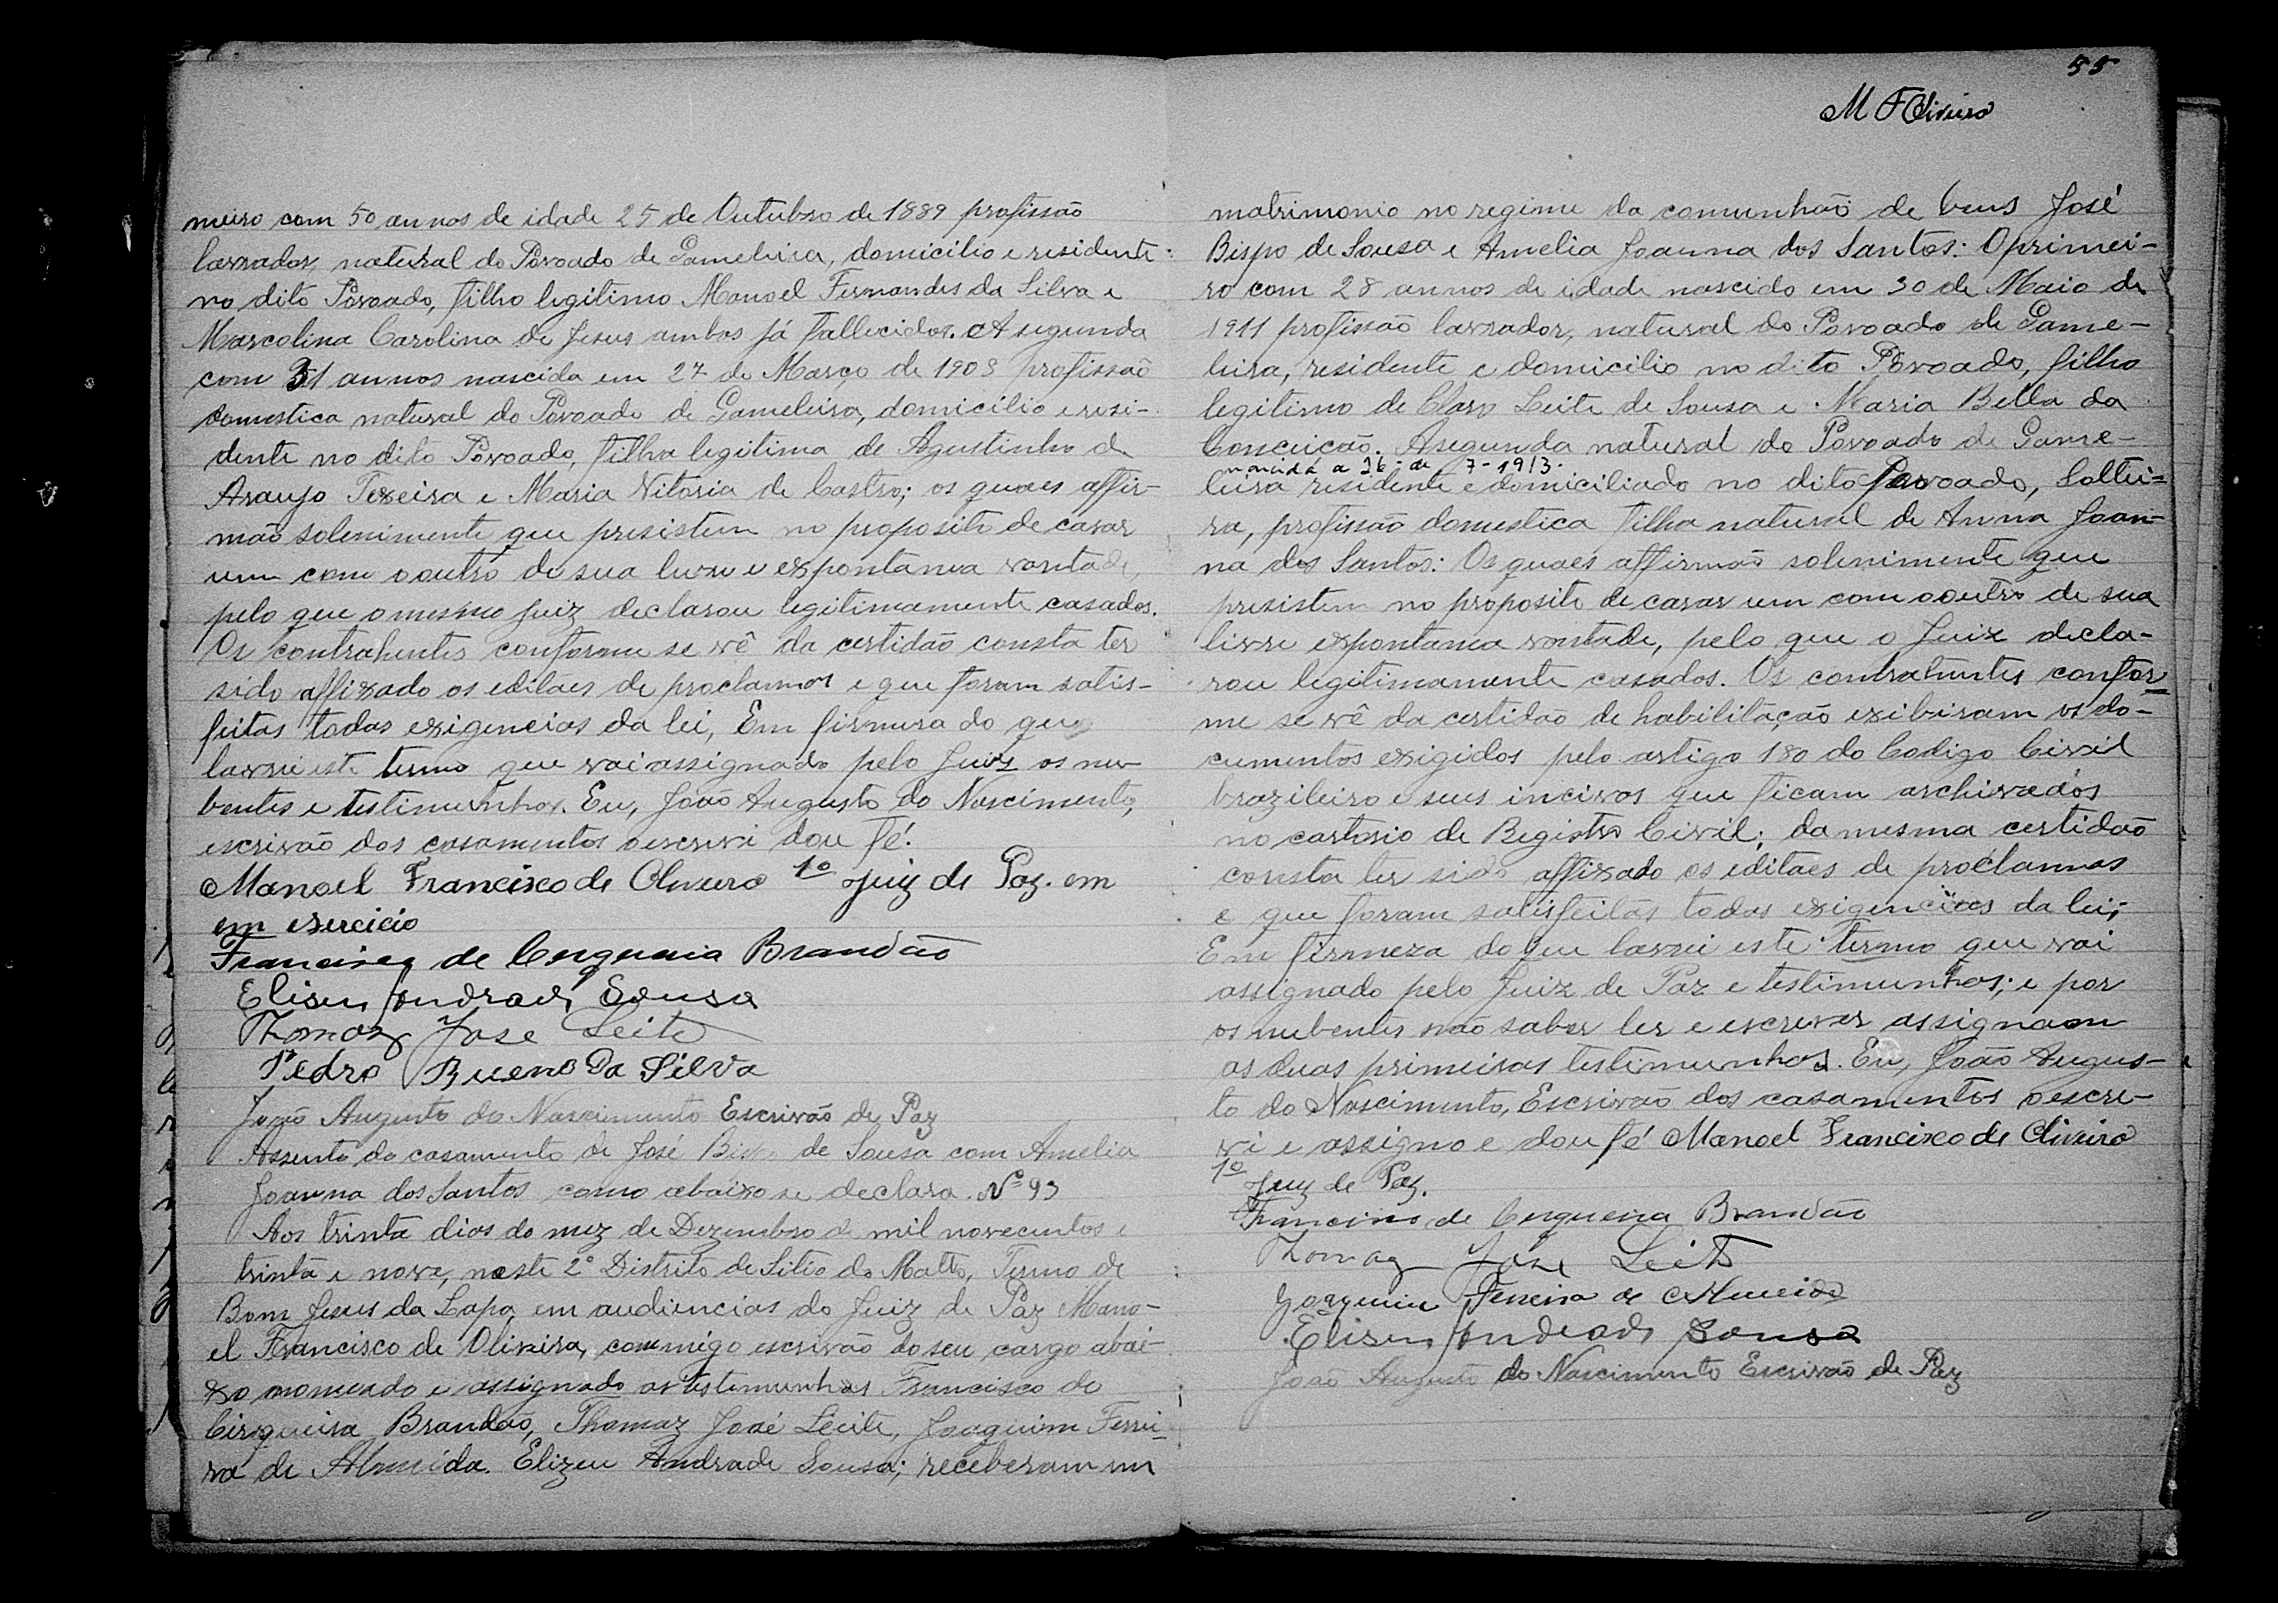 meiro com 50 annos de idade 25 de Outubro de 1889 profissão
lavrador, natural do Povoado de Gameleira, domicilio e residente
no dito Povoado, filho legitimo Manoel Fernandes da Silva e
Marcolina Carolina de Jesus ambos já fallecidos. A segunda
com 31 annos nascida em 27 de Março de 1908 profissão
domestica natural do Povoado de Gameleira, domicilio e resi-
dente no dito Povoado, filha legitima de Agustinho de
Araujo Texeira e Maria Vitoria de Castro; os quaes affir-
mão solenimente que presistem no proposito de casar
um com o outro de sua livre e expontania vontade,
pelo que o mesmo juiz declarou legitimamente casados.
Os contrahentes conforme se vê da certidão consta ter
sido affixado os editaes de proclamos e que foram satis-
feitas todas exigencias da lei, Em firmesa do que
lavrei este termo que vai assignado pelo Juiz os nu-
bentes e testimunhas. Eu, João Augusto do Nascimento,
escrivão dos casamentos o escrevi dou fé.
Manoel Francisco de Oliveira 1º Juiz de Paz. em
em exercicio
Francisco de Cerqueira Brandão
Eliseu Andrade Sousa
Thomaz Jose Leite
Pedro Bueno Da Silva
João Augusto do Nascimento Escrivão de Paz
Assento do casamento de José Bispo de Sousa com Amelia
Joanna dos Santos como abaixo se declara. Nº 93
Aos trinta dias do mez de Dezembro de mil novecentos e
trinta e nove, neste 2º Distrito de Sitio do Matto, Termo de
Bom Jesus da Lapa, em audiencias do Juiz de Paz Mano-
el Francisco de Oliveira, commigo escrivão do seu cargo abai-
xo nomeado e assignado as testemunhas Francisco de
Cirqueira Brandão, Thomaz José Leite, Joaquim Ferrei-
ra de Almeida. Elizeu Andrade Sousa; receberam em
55
M F Oliveira
matrimonio no regime da comunhão de bens José
Bispo de Sousa e Amelia Joanna dos Santos: O primei-
ro com 28 annos de idade nascido em 30 de Maio de
1911 profissão lavrador, natural do Povoado de Game-
leira, residente e domicilio no dito Povoado, filho
legitimo de Claro Leite de Sousa e Maria Bella da
Conceição. A segunda natural do Povoado de Game-
nascida a 26 - de 7 - 1913.
leira residente e domiciliado no dito Povoado, Soltei-
ra, profissão domestica filha natural de Anna Joan-
na dos Santos: Os quaes affirmão solenimente que
presistem no proposito de casar um com o outro de sua
livre expontania vontade, pelo que o Juiz decla-
rou legitimamente casados. Os contrahentes confor-
me se vê da certidão de habilitação exibiram os do-
cumentos exigidos pelo artigo 180 do Codigo Civil
brazileiro e seus incivos que ficam archivados
no cartorio de Registro Civil; da mesma certidão
consta ter sido affixado os editaes de proclamas
e que foram satisfeitas todas exigencias da lei;
Em firmeza do que lavrei este termo que vai
assignado pelo Juiz de Paz e testimunhas; e por
os nubentes não saber ler e escrever assignam
as duas primeiras testimunhas. Eu, João Augus-
to do Nascimento, Escrivão dos casamentos o escre-
vi e assigno e dou fé Manoel Francisco de Oliveira
1º Juiz de Paz.
Francisco de Cerqueira Brandão
Thomaz Jose Leite
Joaquim Ferreira de Almeida
Eliseu Andrade Sousa
João Augusto do Nascimento Escrivão de Paz